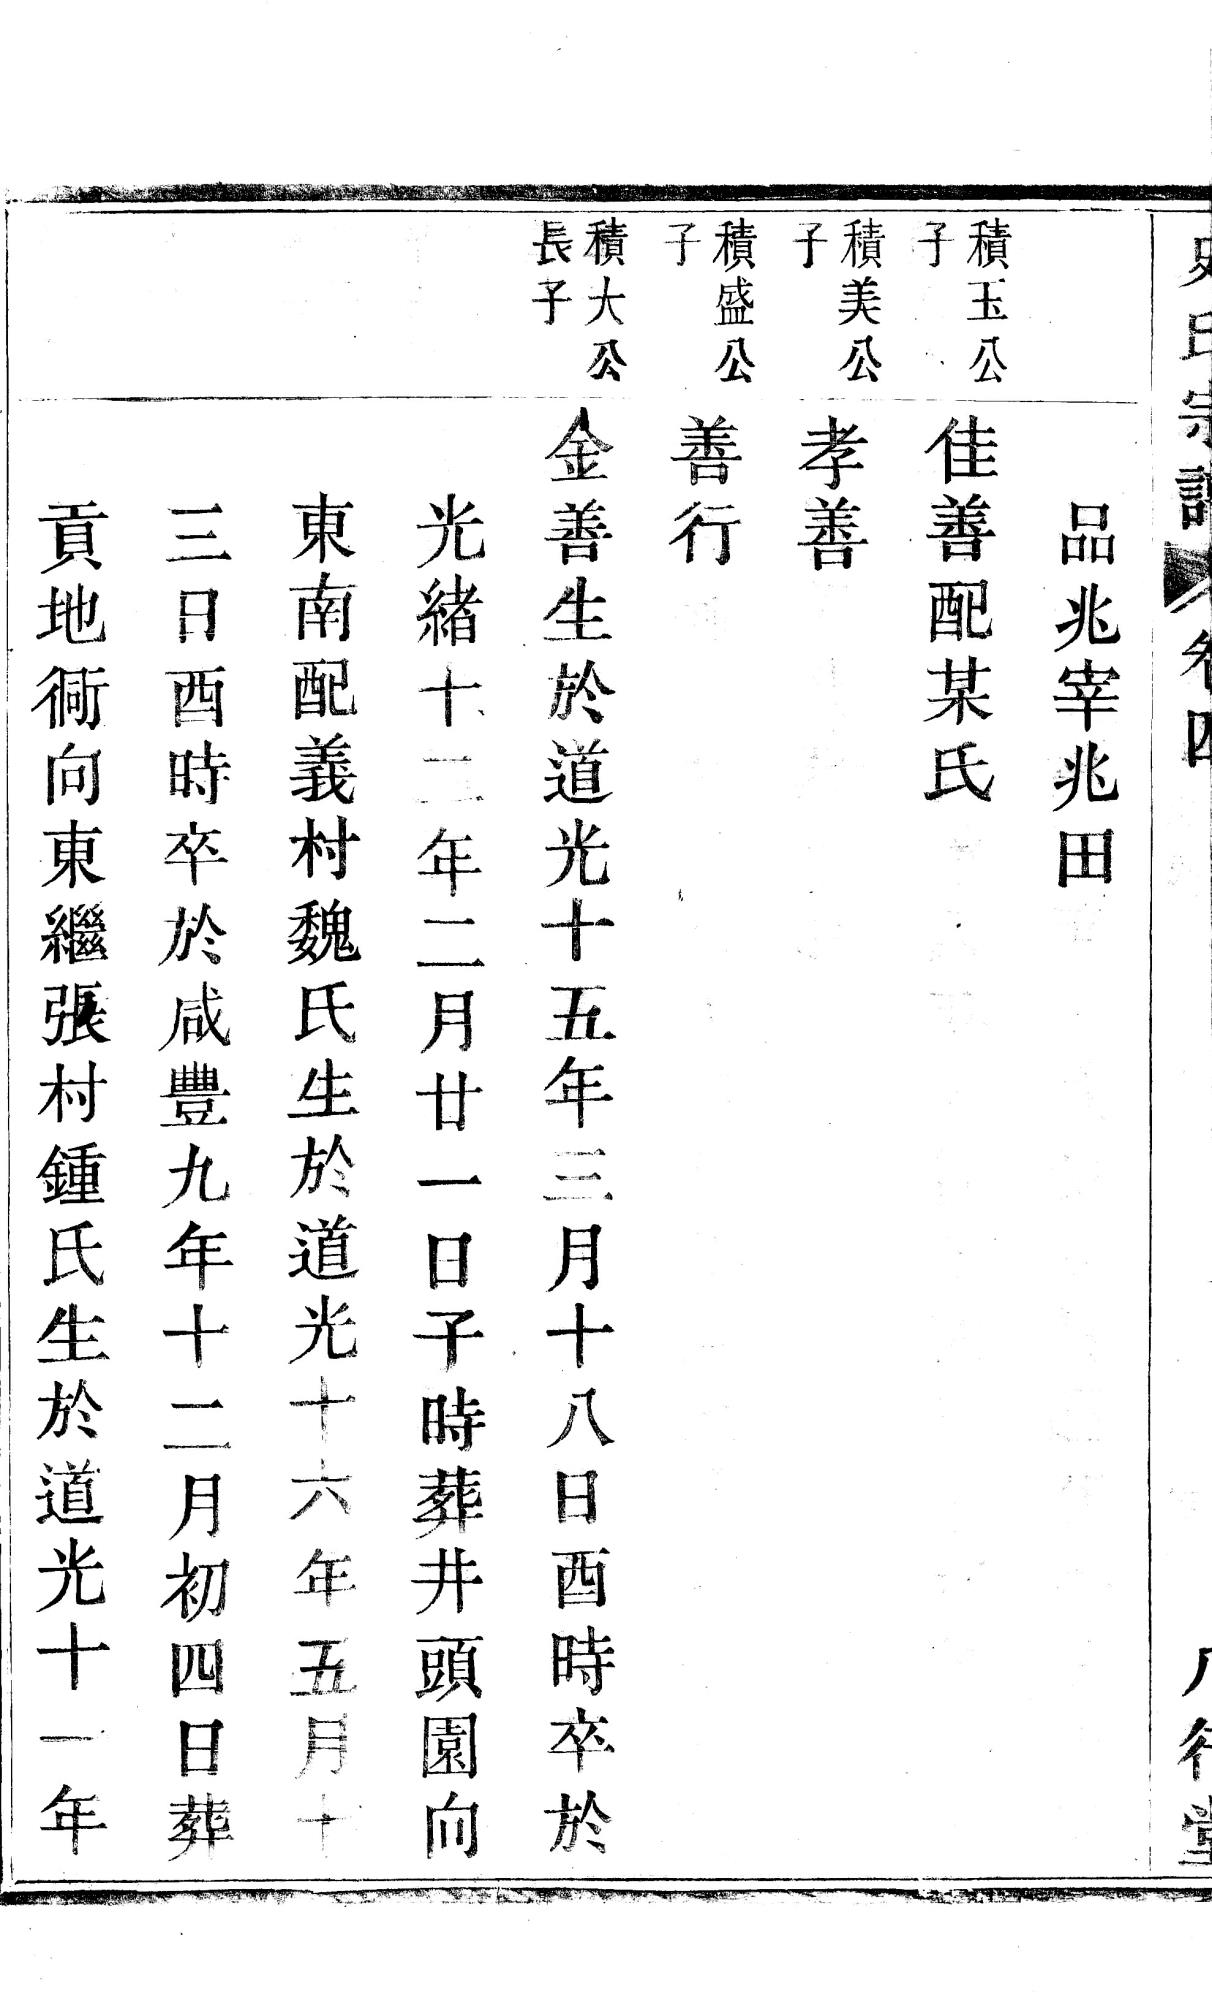 史氏宗譜 卷四 八行堂
品兆宰兆田
積玉公
子
佳善配某氏
積美公
子
孝善
積盛公
子
善行
積大公
長子
金善生於道光十五年三月十八日酉時卒於
光緒十二年二月廿一日子時葬井頭園向
東南配義村魏氏生於道光十六年五月十
三日酉時卒於咸豐九年十二月初四日葬
貢地衕向東繼張村鍾氏生於道光十一年